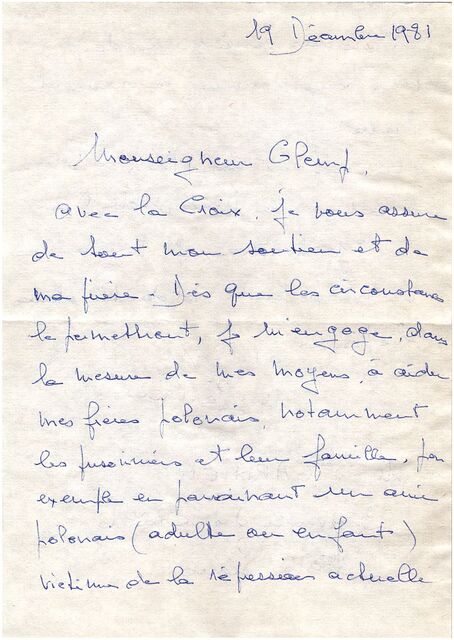 19 Décembre 1981
Monseigneur Glemp,
avec la Croix, je vous assure
de tout mon soutien et de
ma prière. Dès que les circonstances
le permettront, je m'engage, dans
la mesure de mes moyens, à aider
mes frères polonais, notamment
les prisonniers et leur famille, par
exemple en parrainant un ami
polonais (adulte ou enfant)
victime de la répression actuelle